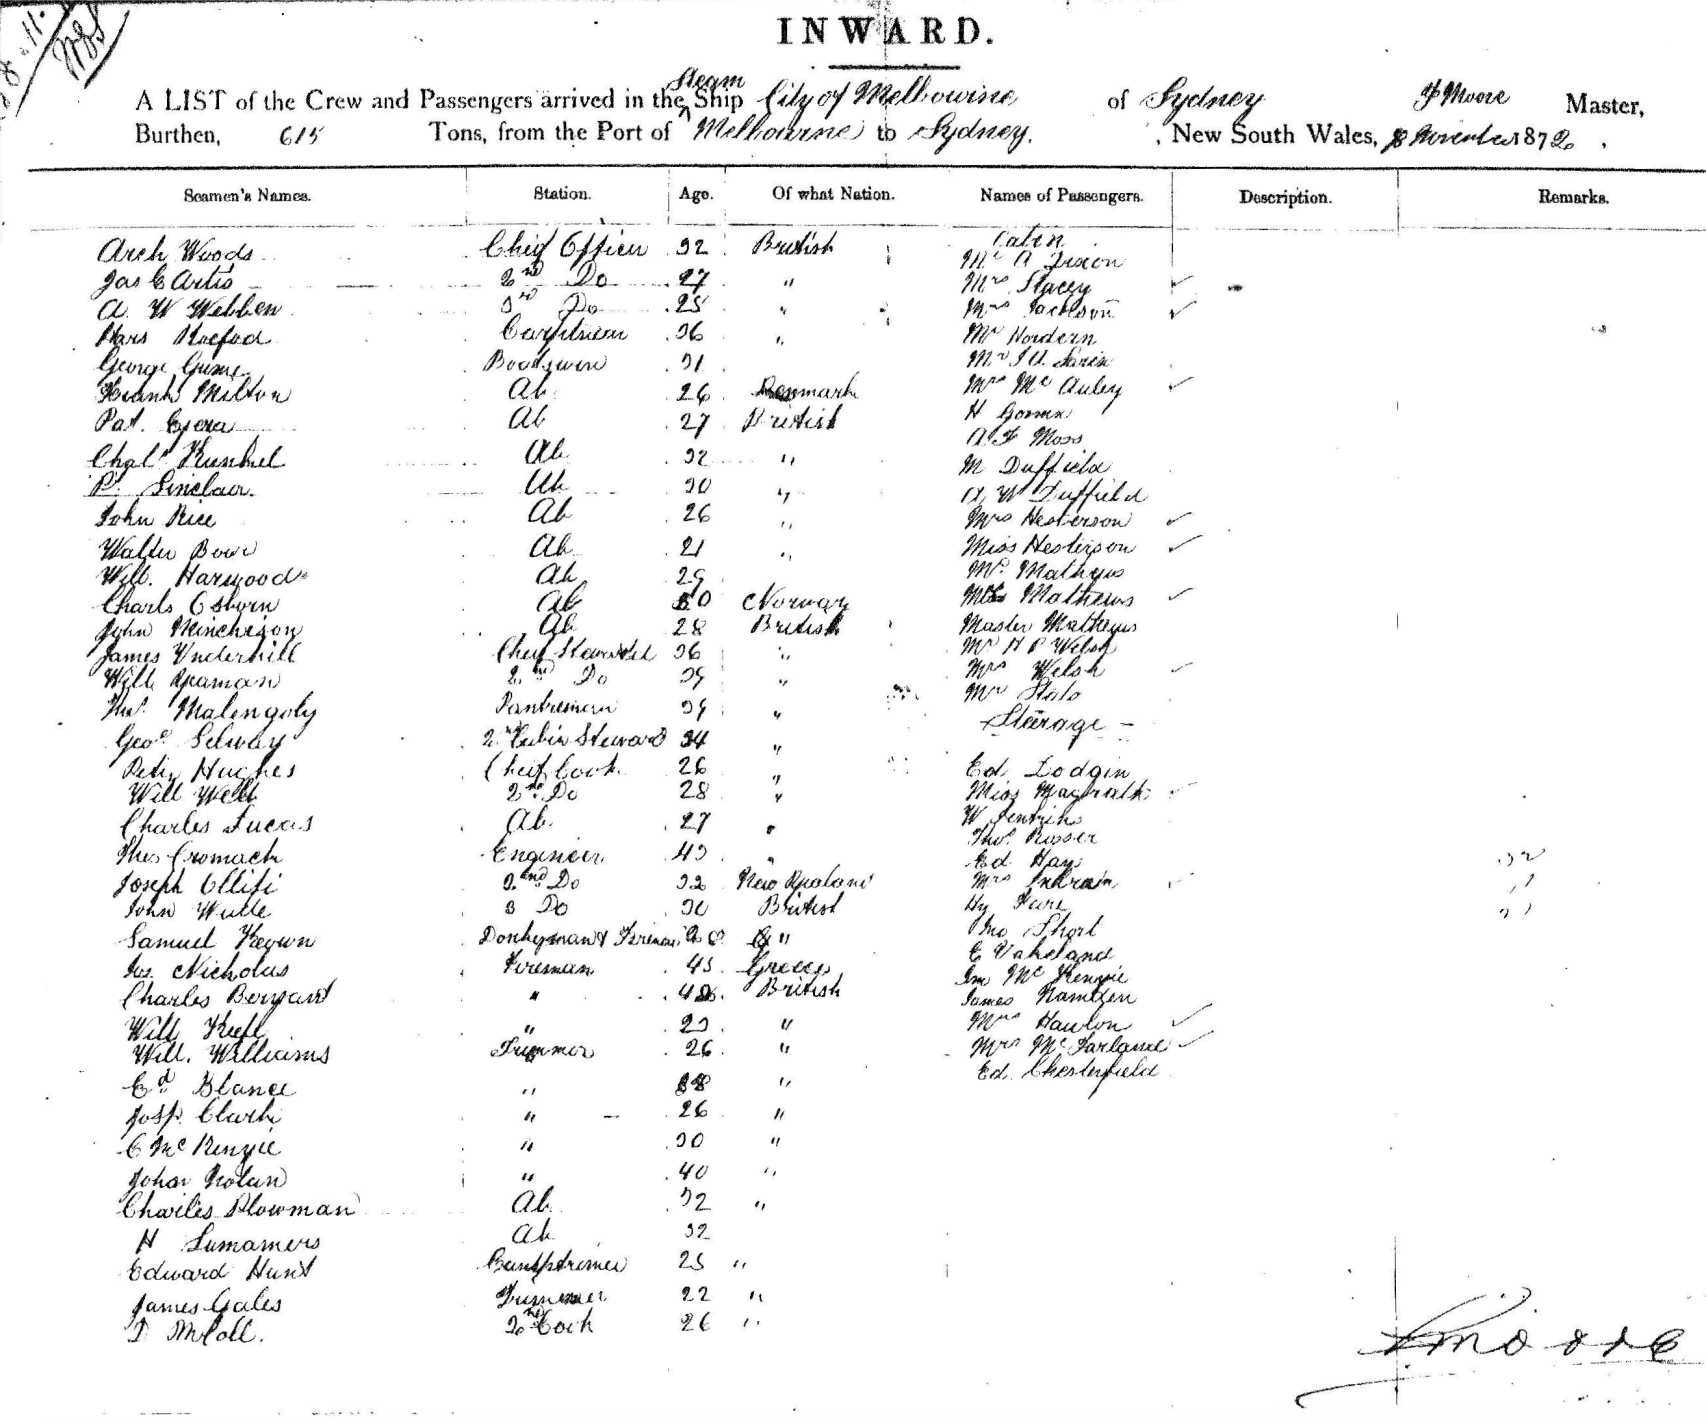 INWARD.
A LIST of the Crew and Passengers arrived in the Steam Ship City of Melbourne of Sydney Moore Master,
Burthen, 615 Tons, from the Port of Melbourne to Sydney. , New South Wales, 8 November 1872 .
Seamen's Names. Station. Age. Of what Nation. Names of Passengers. Description. Remarks.
Arch Woods Chief Officer 32 British Cabin
Jas C Artis 2nd Do 27 " Mr A Dixon
A. W Webben 3rd Do 25 " Mrs Stacey
Carpenter 36 " Mrs Jackson
George Grime Boatswain 31 Mr Hordern
Frank Milton Ab 26 Denmark Mrs McAuley
Pat. Ab 27 British H
Chals Kunkel Ab 32 " A F Moss
P. Sinclair. Ab 30 " M Duffield
John Rice Ab 26 " A W Duffield
Walter Ab 21 " Mrs Hesterson
Will. Harwood Ab 29 Miss Hesterson
Charls Osborn Ab 30 Norway Mr Mathews
John Minchinon Ab 28 British Mrs Mathews
James Underhill Chief Steward 36 " Master Mathews
Will Yeaman 2nd Do 39 " Mr H P Welsh
Thos. Malengoly Pantreman 39 " Mrs Welsh
Geoe Selway 2nd Cabin Steward 34 " Steerage -
Peter Hughes Chief Cook 26 " Ed. Lodgin
Will Well 2nd Do 28 " Miss Magrath
Charles Lucas Ab. 27 " W
Thos Cromack Engineer 43 " Thos. Rosser
Joseph 2nd Do 32 New Zealand Ed. Hay
John 3 Do 30 British Hy
Samuel Keown Donkeyman & Fireman " Jno Short
Jos. Nicholas Fireman 45 Greece E Vakeland
Charles Bernard " British Jm McKenzie
Will Keefe " 23 " James
Will. Williams Trimmer 26 " Mrs Hanlon
Ed. Blance " 38 " Mrs McFarland
Josp. Clark " - 26 " Ed. Chesterfield
C McKenzie " 30 "
John Nolan " 40 "
Charles Plowman Ab 32 "
H Ab 32
Edward Hunt 25 "
James Gales Trimmer 22 "
T McColl. 2nd Cook 26 "
Moore